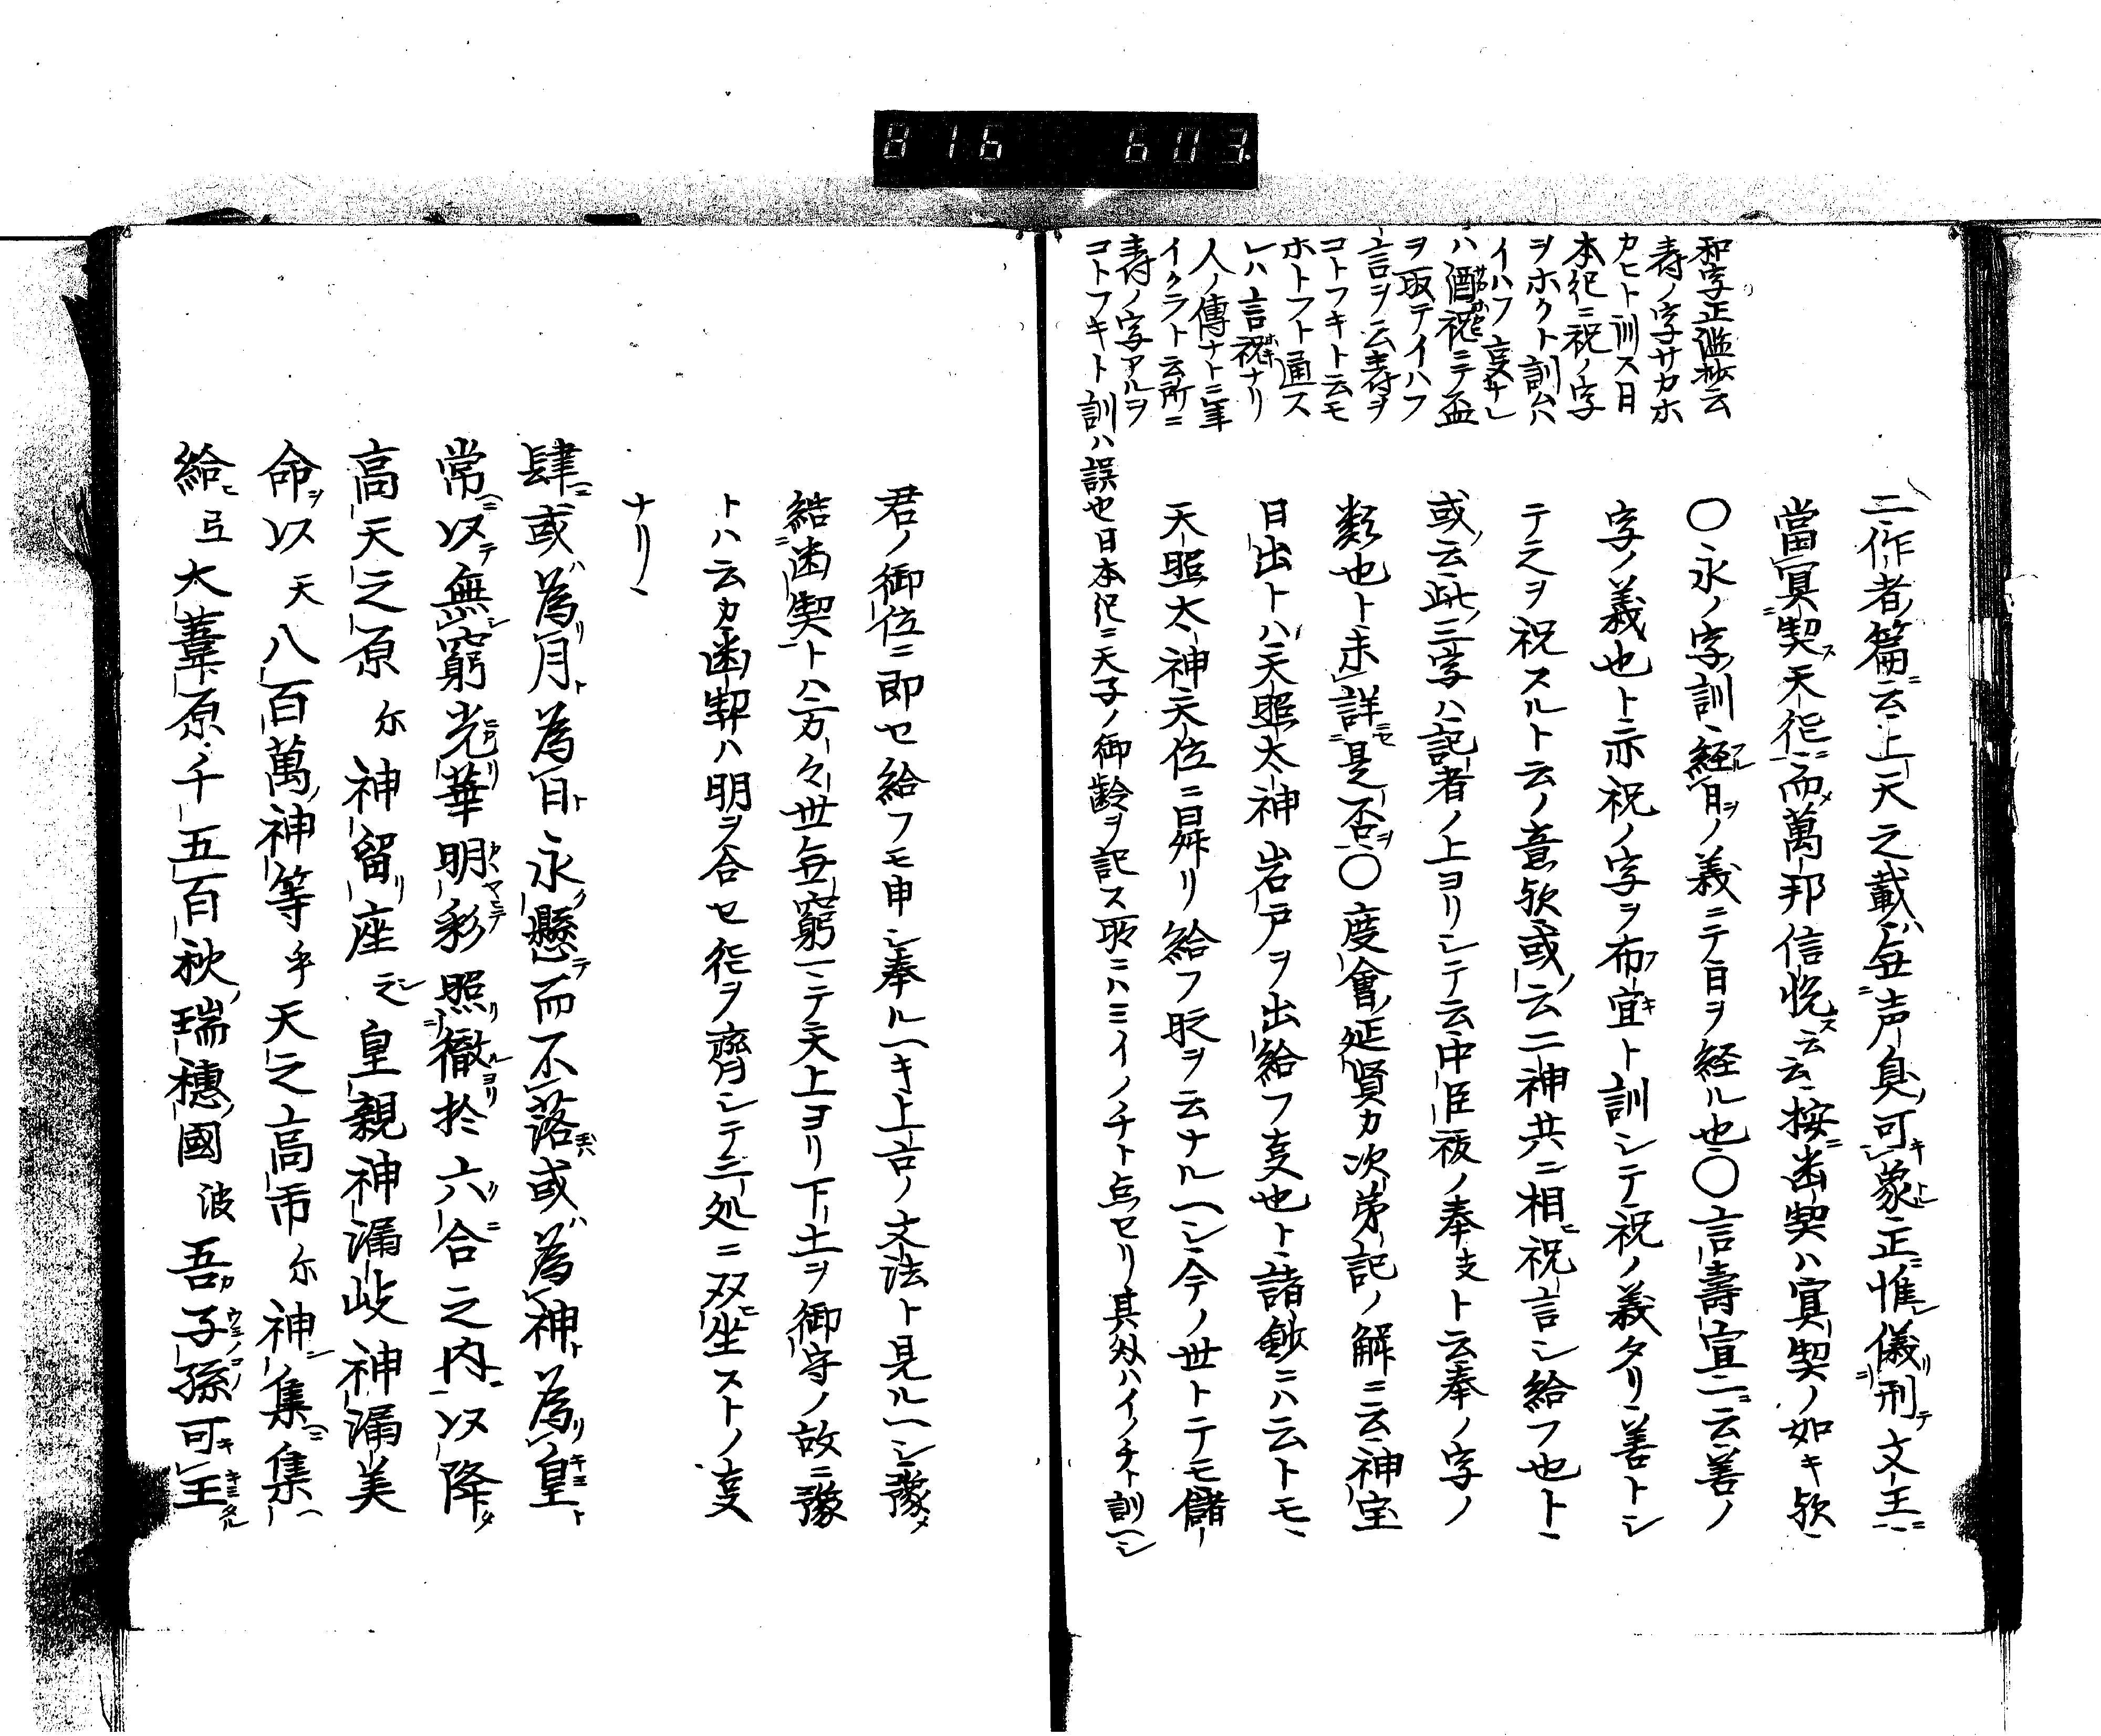 816 603.
和字正濫抄云
寿ノ字サカホ
カヒト訓ス日
本紀ニ祝ノ字
ヲホクト訓ムハ
イハフ叓ナレ
ハ酒祝ニテ盃
ヲ取テイハフ
言ヲ云寿ヲ
コトフキト云モ
ホトフト通ス
レハ言祝ナリ
人ノ傳ナトニ年
イクラト云所ニ
寿ノ字アルヲ
コトフキト訓ハ誤也日本紀ニ天子ノ御齢ヲ記ス所ニハミイノチト点セリ其外ハイノチト訓ヘシ
二作者篇云上天之載ハ毎声臭可キ象トル正惟儀刑テ文王ニ
當冥契ス天作而萬邦信悦ス云云按ニ凾契ハ冥契ノ如キ欤
〇永ノ字訓経ル月ヲノ義ニテ日ヲ経ル也〇言壽宣ニ云善ノ
字ノ義也ト示祝ノ字ヲ布宜ト訓シテ祝ノ義タリ善トシ
テ之ヲ祝スルト云ノ意欤或云二神共ニ相祝言シ給フ也ト
或云此三字ハ記者ノ上ヨリシテ云中臣祓ノ奉支ト云奉ノ字ノ
類也ト未詳是否ヲ〇度會延賢カ次第記ノ解ニ云神宝
日出トハ天照太神岩戸ヲ出給フ叓也ト諸鈔ニハ云トモ
天照太神天位ニ日舛リ給フ叚ヲ云ナルヘシ今ノ世トテモ儲
君ノ御位ニ即セ給フモ申シ奉ルヘキ上古ノ文法ト見ルヘシ豫メ
結凾契トハ万々世毎窮ニテ天上ヨリ下土ヲ御守ノ故ニ豫
トハ云カ凾契ハ明ヲ合セ作ヲ齊シテ一処ニ双坐ストノ叓
ナリ
肆ニ或ハ為リ月ト為日ト永ク懸テ而不落玉ハ或ハ為神ト為リ皇ト
常ニ以テ無シ窮光華明彩照リ徹ルヨリ於六合ノ之内ニ以降タ
高天之原尓神留リ座シ之皇親神漏岐神漏美
命ヲ以天八百萬神等乎天之高市尓神集集ヘ
給ヒ弖大葦原千五百秋瑞穗國波吾カ子孫可キ王